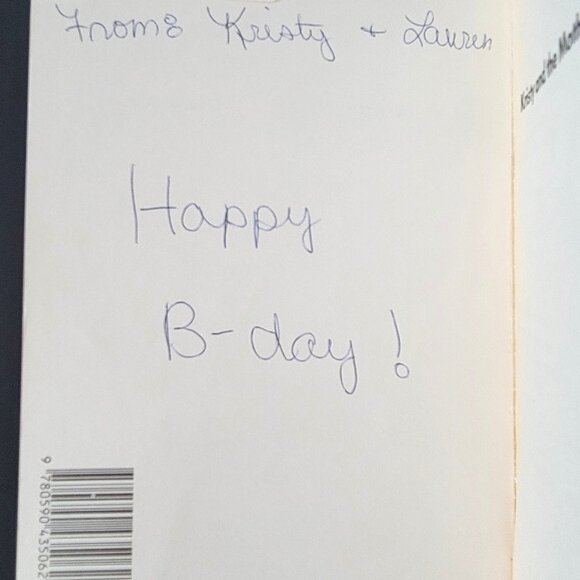 From: Kristy + Lauren
Happy
B-day!
Kristy and the
9 780590 435062